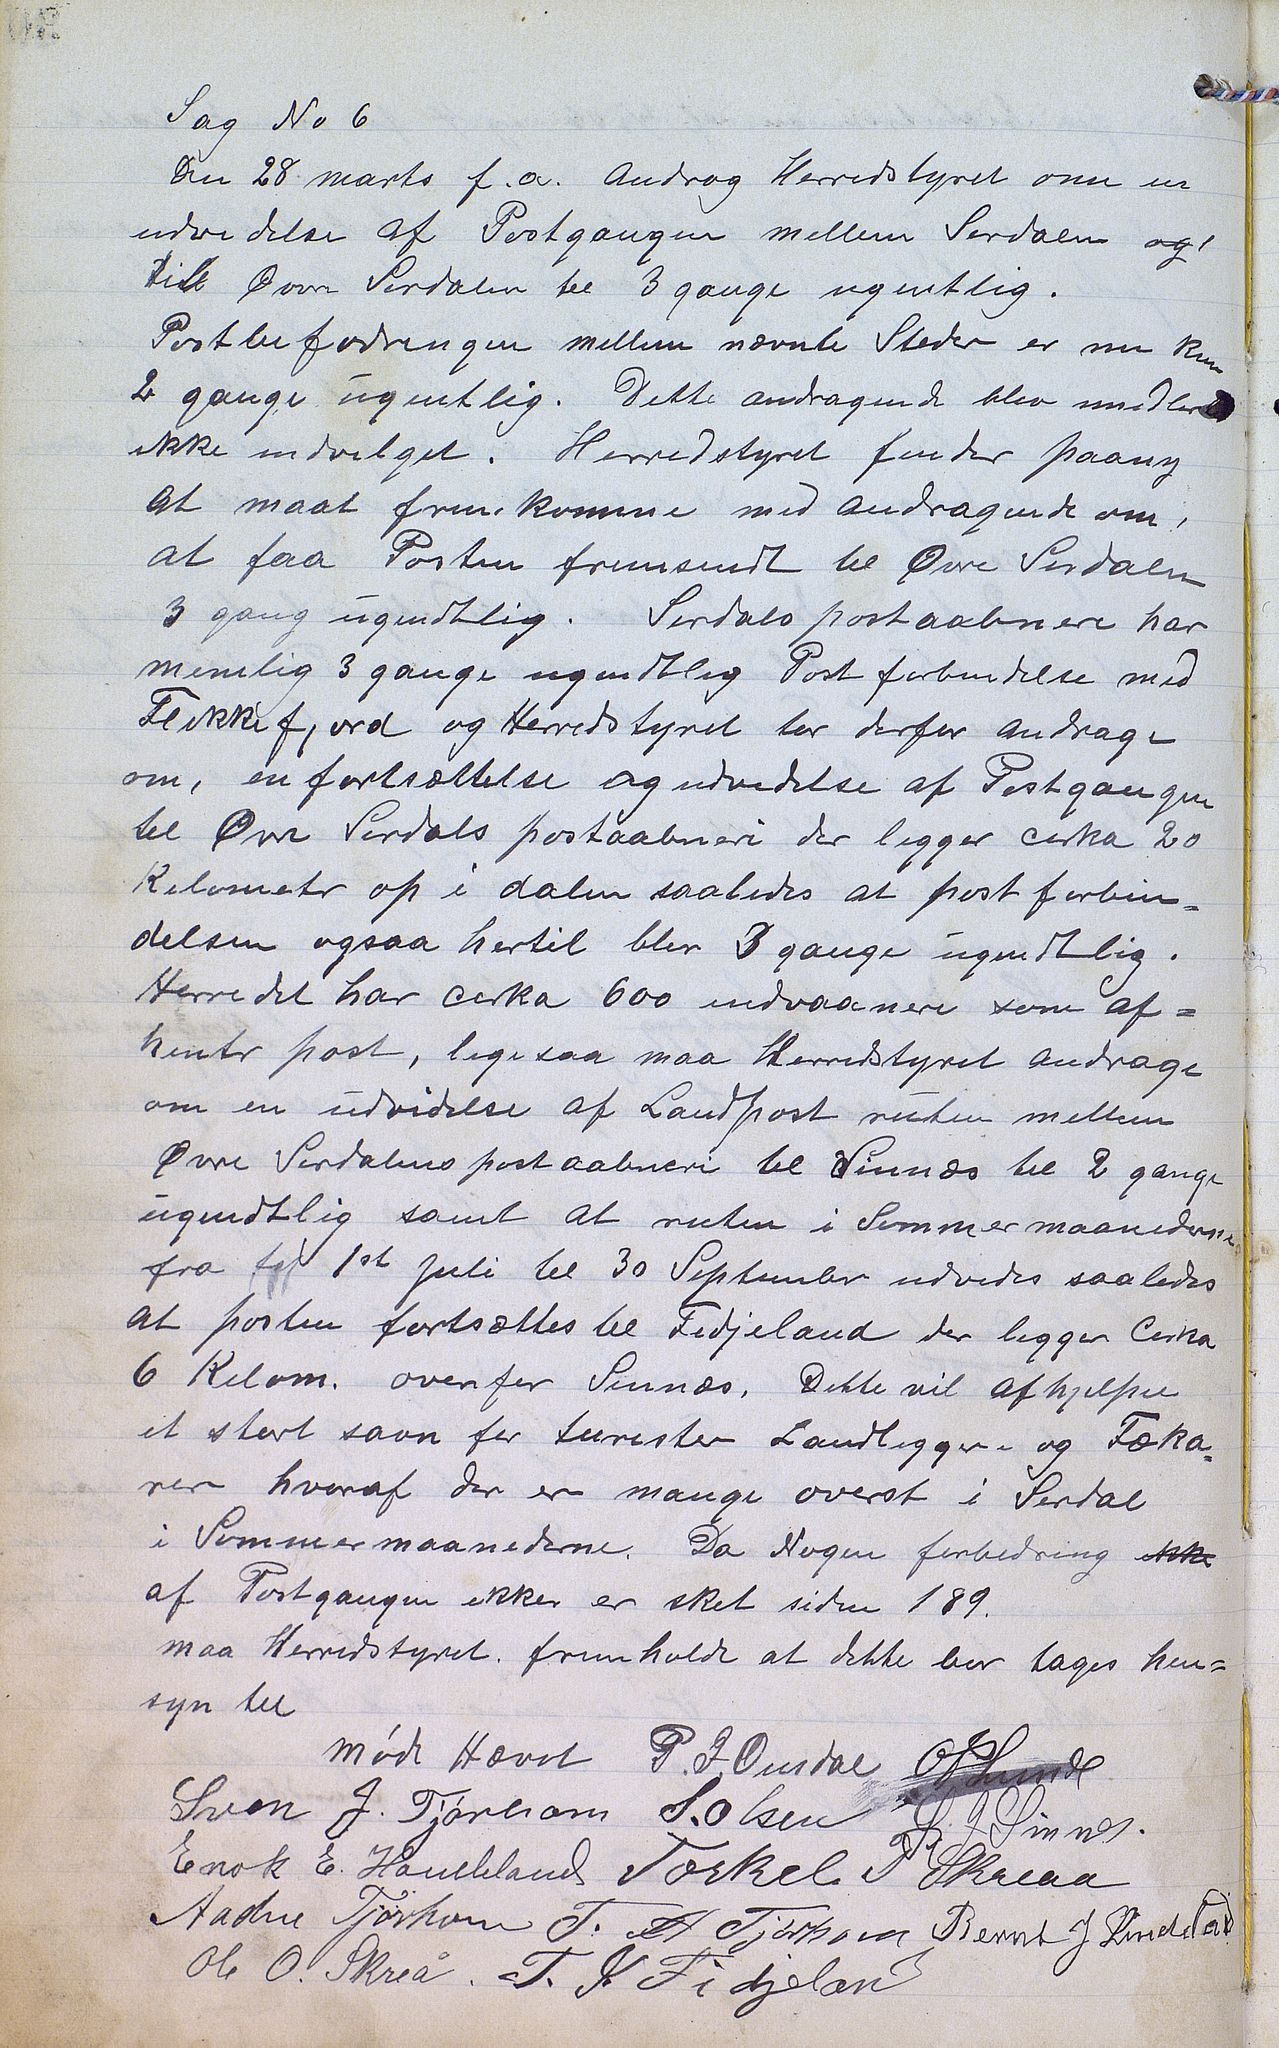 Sag No 6
Den 28 marts f.a. androg Herredstyret om en
udvidelse af Postgangen mellem Serdalen og
till Øvre Serdalen til 3 gange ugentlig.
Postbefodringen mellem nævnte Steder er nu kun
2 gange ugentlig. Dette andragende blev imidlert
ikke indvilget. Herredstyret finder paany
at maat fremkomme med andragende om,
at faa Posten fremsendt til Øvre Serdalen
3 gang ugendtlig. Serdals postaabneri har
menelig 3 gange ugendtlig Post forbindelse med
Flekkefjord og Herredstyret tor derfor andrage
om, en fortsættelse og udvidelse af Postgangen
til Øvre Serdals postaabneri der ligger cirka 20
Kilometer op i dalen saaledes at post forbin=
delsen ogsaa hertil blev 3 gange ugendtlig.
Herredet har cirka 600 indvaanere som af=
henter post, ligesaa maa Herredstyret andrage
om en udvidelse af Landpost ruten mellem
Øvre Serdalens postaabneri til Sinnæs til 2 gange
ugendtlig samt at ruten i Sommermaanederne
fra 1st juli til 30 September udvides saaledes
at posten fortsættes til Fidjeland der ligger Cirka
6 Kilom. ovenfor Sinnæs. Dette vil afhjelpe
et stort savn for turister Landliggere og Fæka=
rer hvoraf der er mange overst i Serdal
i Sommermaanederne. Da Nogen forbedring ikke
af Postgangen ikker er sket siden 189.
maa Herredstyret. fremholde at dette bor tages hen=
syn til
Møde Hævet P. J. Ousdal O Lunde
Sven J. Tjørhom S. Olsen S. J. Sinnes.
Enok E. Haukeland Torkel P Skreaa
Aadne Tjørhom T. A Tjørhom Bernt J Lindeland
Ole O. Skreå. T. J. Fidjeland